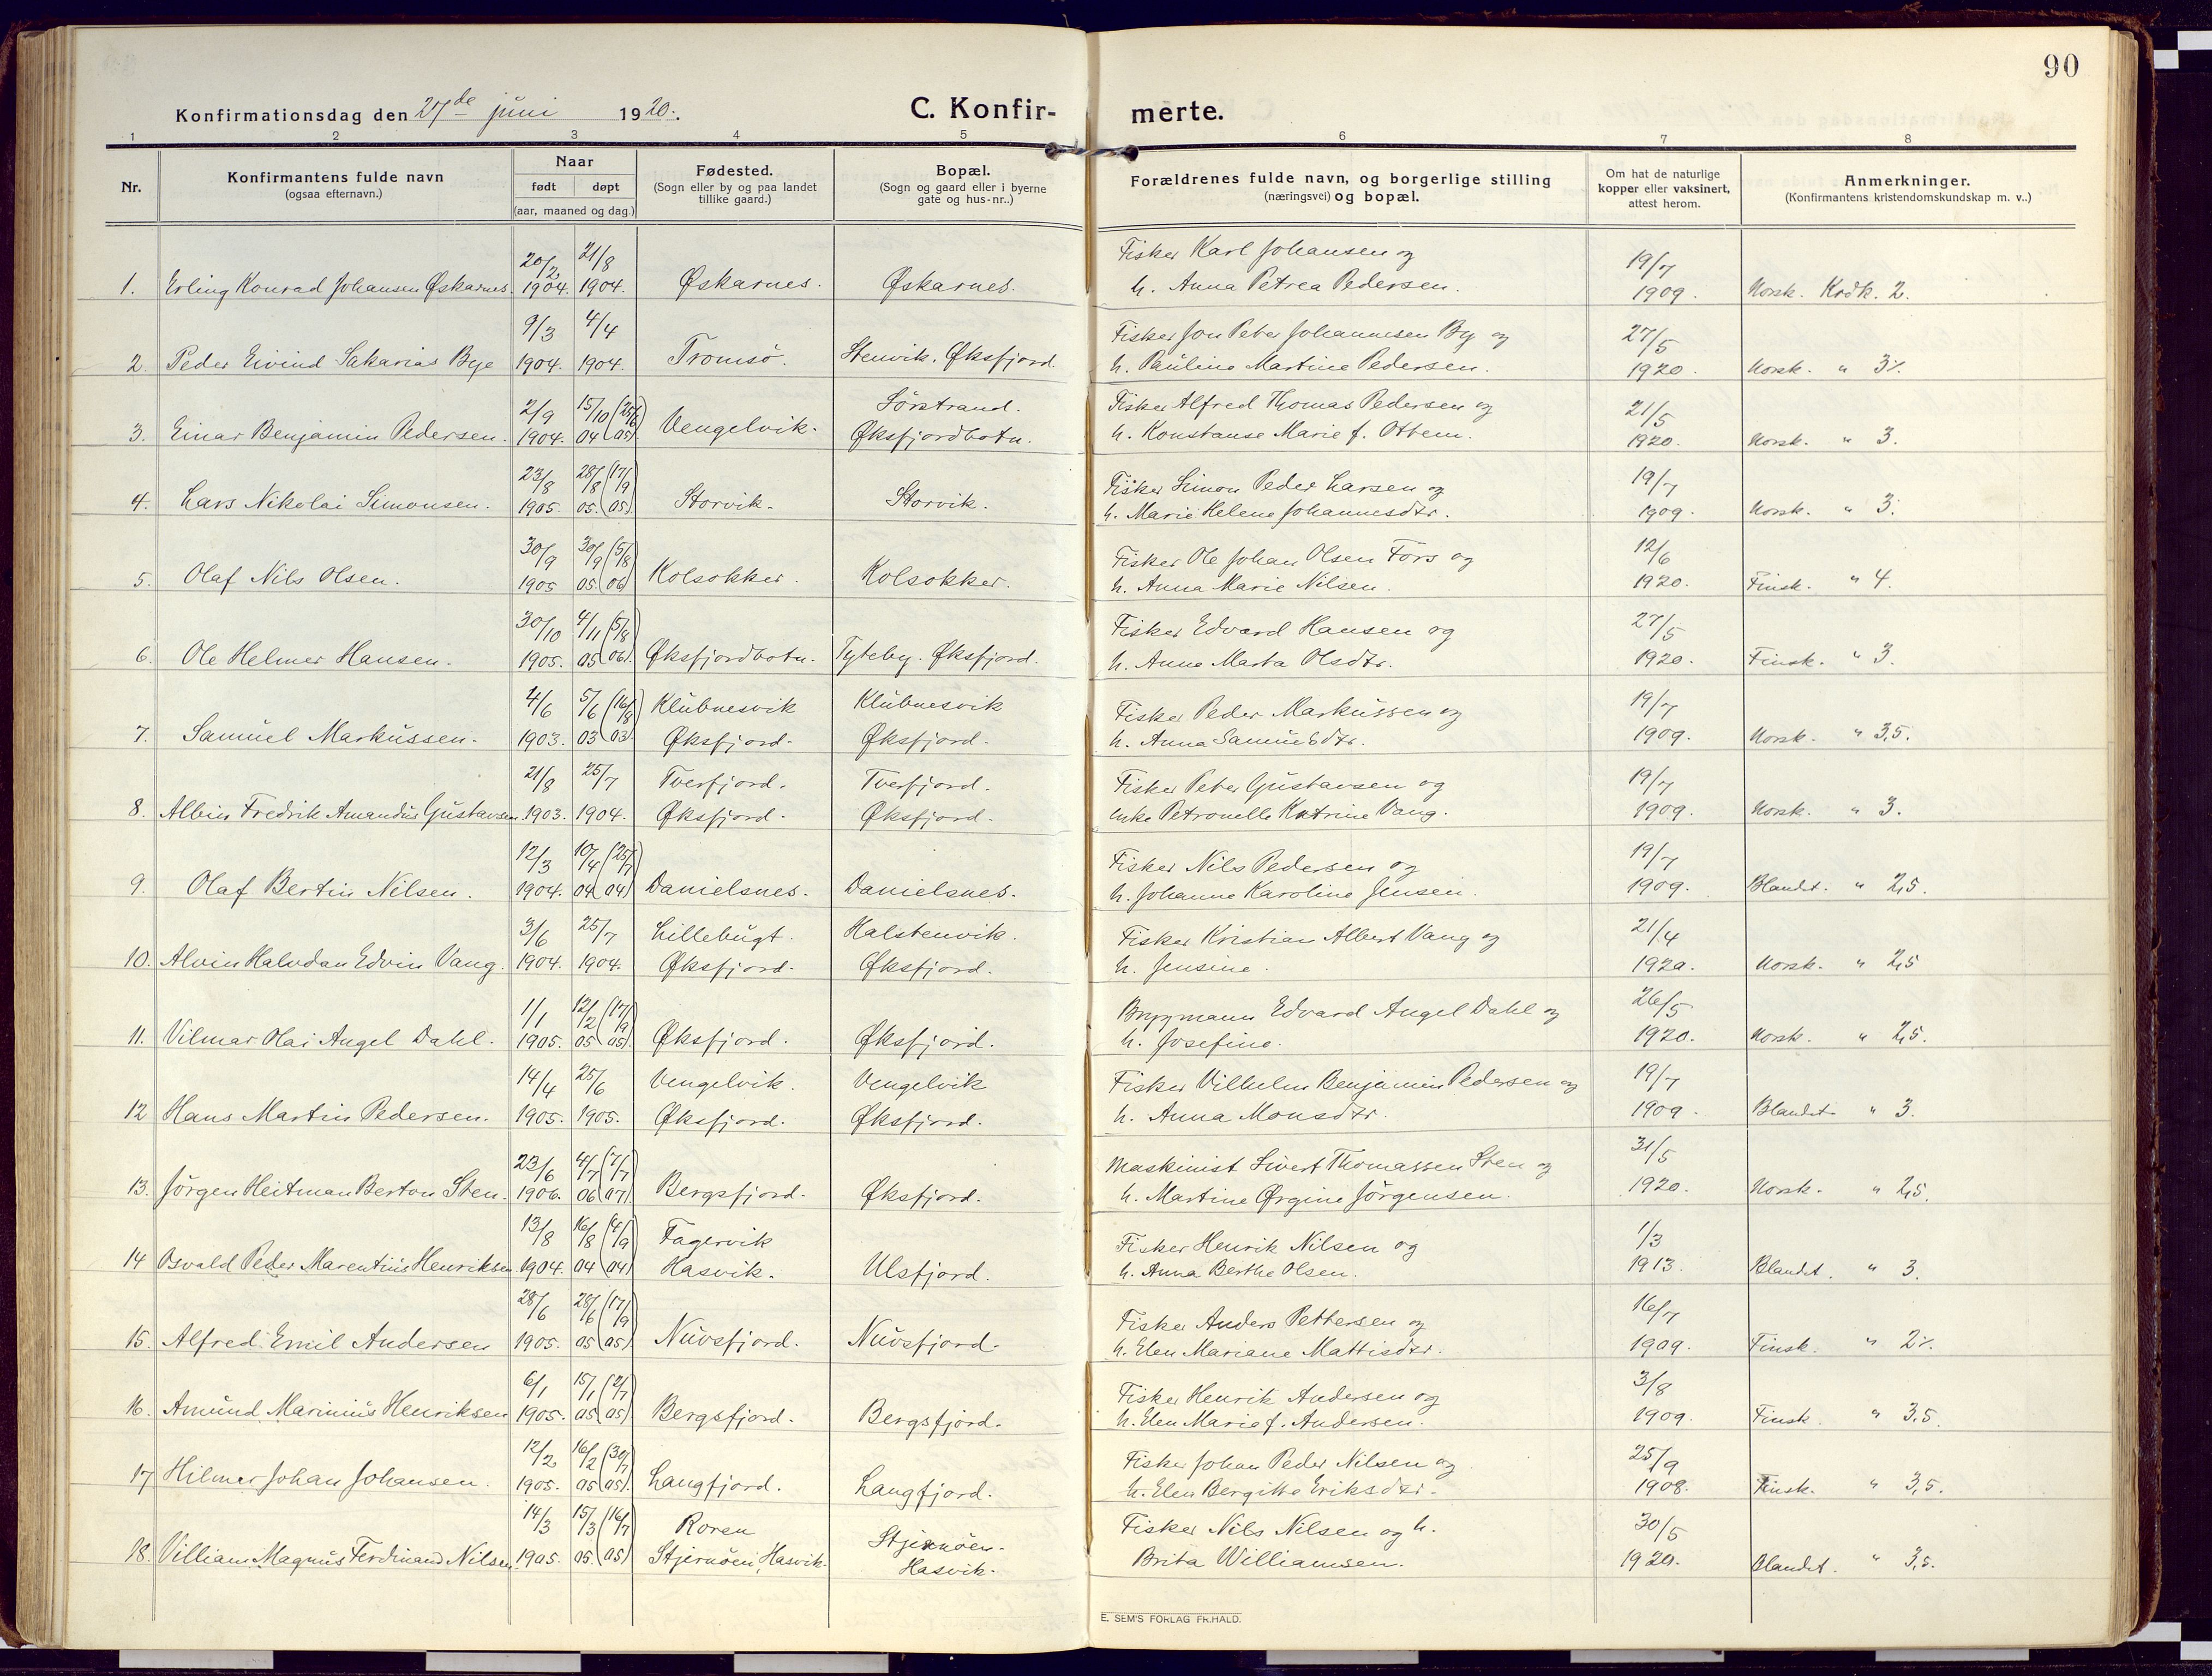 90
Konfirmationsdag den 27de juni 1920.
C. Konfir-
merte.
1 2 3 4 5 6 7 8
Nr.
Konfirmantens fulde navn
(ogsaa efternavn.)
Naar
født døpt
(aar, maaned og dag.)
Fødested.
(Sogn eller by og paa landet
tillike gaard.)
Bopæl.
(Sogn og gaard eller i byerne
gate og hus-nr..)
Forældrenes fulde navn, og borgerlige stilling
(næringsvei) og bopæl.
Om hat de naturlige
kopper eller vaksinert,
attest herom.
Anmerkninger.
(Konfirmantens kristendomskundskap m. v..)
20/2 21/8 Fisker Karl Johansen og 19/7
1. Erling Konrad Johansen Øskarnes. 1904. 1904. Øskarnes. Øskarnes. h. Anna Petrea Pedersen. 1909. Norsk. Krdk. 2.
9/3 4/4 Fisker Jon Peter Johannesen By og 27/5
2. Peder Eivind Sakarias Bye 1904. 1904. Tromsö. Stenvik. Øksfjord. h. Pauline Martine Pedersen. 1920. Norsk. " 3÷
2/9 15/10 (25/6) Sörstrand. Fisker Alfred Thomas Pedersen og 21/5
3. Einar Benjamin Pedersen. 1904. 04 (05) Vengelvik. Øksfjordbotn. h. Konstanse Marie f. Ottem. 1920. Norsk. " 3.
23/8 28/8 (17/9) Fisker Simon Peder Larsen og 19/7
4. Lars Nikolai Simonsen. 1905. 05. (05). Storvik. Storvik. h. Marie Helene Johannesdtr. 1909. Norsk. " 3.
30/9 30/9 (5/8) Fisker Ole Johan Olsen Fors og 12/6
5. Olaf Nils Olsen. 1905 05. (06) Kolsokker. Kolsokker. h. Anna Marie Nilsen. 1920. Finsk. " 4.
30/10 4/11 (5/8) Fisker Edvard Hansen og 27/5
6. Ole Helmer Hansen. 1905. 05 (06). Øksfjordbotn. Tyteby. Øksfjord. h. Anne Marta Olsdtr. 1920. Finsk. " 3.
4/6 5/6 (16/8) Klubnesvik Klubnesvik Fisker Peder Markussen og 19/7
7. Samuel Markussen. 1903. 03 (03) Øksfjord. Øksfjord. h. Anna Samuelsdtr. 1909. Norsk. " 3,5.
21/8 25/7 Tverfjord. Tverfjord. Fisker Peter Gustavsen og 19/7
8. Albin Fredrik Amandus Gustavsen. 1903. 1904. Øksfjord. Øksfjord. enke Petronelle Katrine Vang. 1909. Norsk. " 3.
12/3 10/4 (25/7) Fisker Nils Pedersen og 19/7
9. Olaf Bertin Nilsen. 1904. 04 (04) Danielsnes. Danielsnes. h. Johanne Karoline Jensen. 1909. Blandet. " 2,5.
3/6 25/7 Lillebugt. Halstenvik. Fisker Kristian Albert Vang og 21/4
10. Alvin Halvdan Edvin Vang. 1904. 1904. Øksfjord. Øksfjord. h. Jensine. 1920. Norsk. " 2,5
1/1 12/2 (17/9) Bryggmann Edvard Angel Dahl og 26/5
11. Vilmar Olai Angel Dahl. 1905. 05 (05). Øksfjord. Øksfjord. h. Josefine. 1920. Norsk. " 2,5.
14/4 25/6 Vengelvik. Vengelvik Fisker Vilhelm Benjamin Pedersen og 19/7
12 Hans Martin Pedersen. 1905. 1905. Øksfjord. Øksfjord. h. Anna Monsdtr. 1909. Blandet " 3.
23/6 4/7 (7/7) Maskinist Sivert Thomassen Sten og 31/5
13. Jörgen Heitman Berton Sten. 1906. 06 (07). Bergsfjord. Øksfjord. h. Martine Ørgine Jörgensen. 1920. Norsk. " 2,5.
13/8 16/8 (4/9) Fagervik Fisker Henrik Nilsen og 1/3
14 Osvald Peder Marentius Henriksen. 1904. 04 (04) Hasvik. Ulsfjord. h. Anna Berthe Olsen. 1913. Blandet. " 3.
28/6 28/6 (17/9) Fisker Anders Pettersen og 16/7
15. Alfred Emil Andersen 1905. 05 (05) Nuvsfjord. Nuvsfjord. h. Elen Mariane Mattisdtr. 1909. Finsk. " 2÷
6/1 15/1 (2/7) Fisker Henrik Andersen og 3/8
16. Amund Marinius Henriksen 1905. 05 (05) Bergsfjord. Bergsfjord. h. Elen Marie f. Andersen. 1909. Finsk. " 3,5.
12/2 16/2 (30/7) Fisker Johan Peder Nilsen og 25/9
17 Hilmar Johan Johansen. 1905. 05 (05). Langfjord. Langfjord. h. Elen Bergitte Eriksdtr. 1908. Finsk. " 3,5.
14/3 15/3 (16/7) Roren Stjernöen. Fisker Nils Nilsen og h. 30/5
18. Villiam Magnus Ferdinand Nilsen. 1905. 05 (05) Stjernöen, Hasvik. Hasvik. Brita Williamsen. 1920. Blandet. " 3,5.
E. SEM'S FORLAG FR.HALD.